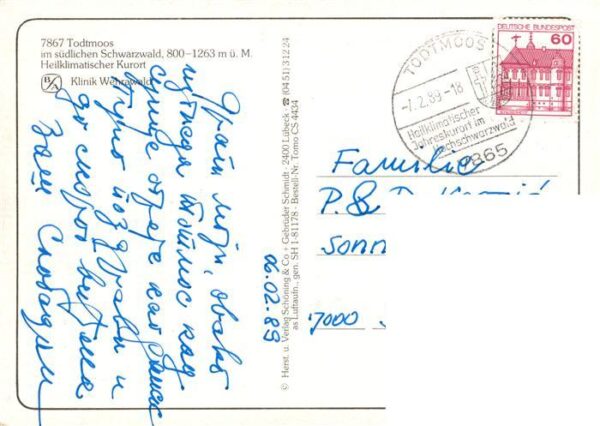 7867 Todtmoos
im südlichen Schwarzwald, 800–1263 m ü. M.
Heilklimatischer Kurort
Klinik Wehrawald
драги моји, овако
изгледа Тотмос кад
сунце огреје као данас
пуно поздрава и
до скорог виђења
Ваш Слободан
06.02.89
© Herst. u. Verlag Schöning & Co + Gebrüder Schmidt · 2400 Lübeck · ☎ (0451) 31224
as Luftaufn., gen. SH 1-81178 · Bestell-Nr. Tomo CS 4434
TODTMOOS
-7.2.89-18
Heilklimatischer
Jahreskurort im
Hochschwarzwald
7865
DEUTSCHE BUNDESPOST
60
Familie
P. & D.
Sonn
7000